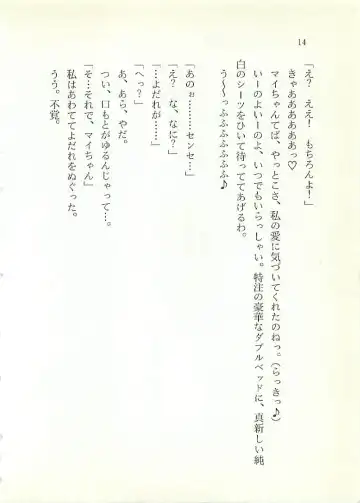 14
「え？　ええ！　もちろんよ！」
きゃああああああっ♡
マイちゃんてば、やっとこさ、私の愛に気づいてくれたのねっ。（らっきっ♪）
いーのよいーのよ、いつでもいらっしゃい。特注の豪華なダブルベッドに、真新しい純
白のシーツをひいて待っててあげるわ。
う～～っふふふふふふふ♪
「あのぉ………センセ…」
「え？　な、なに？」
「…よだれが……」
「へっ？」
あ、あら、やだ。
つい、口もとがゆるんじゃって…。
「そ…それで、マイちゃん」
私はあわててよだれをぬぐった。
うう。不覚。